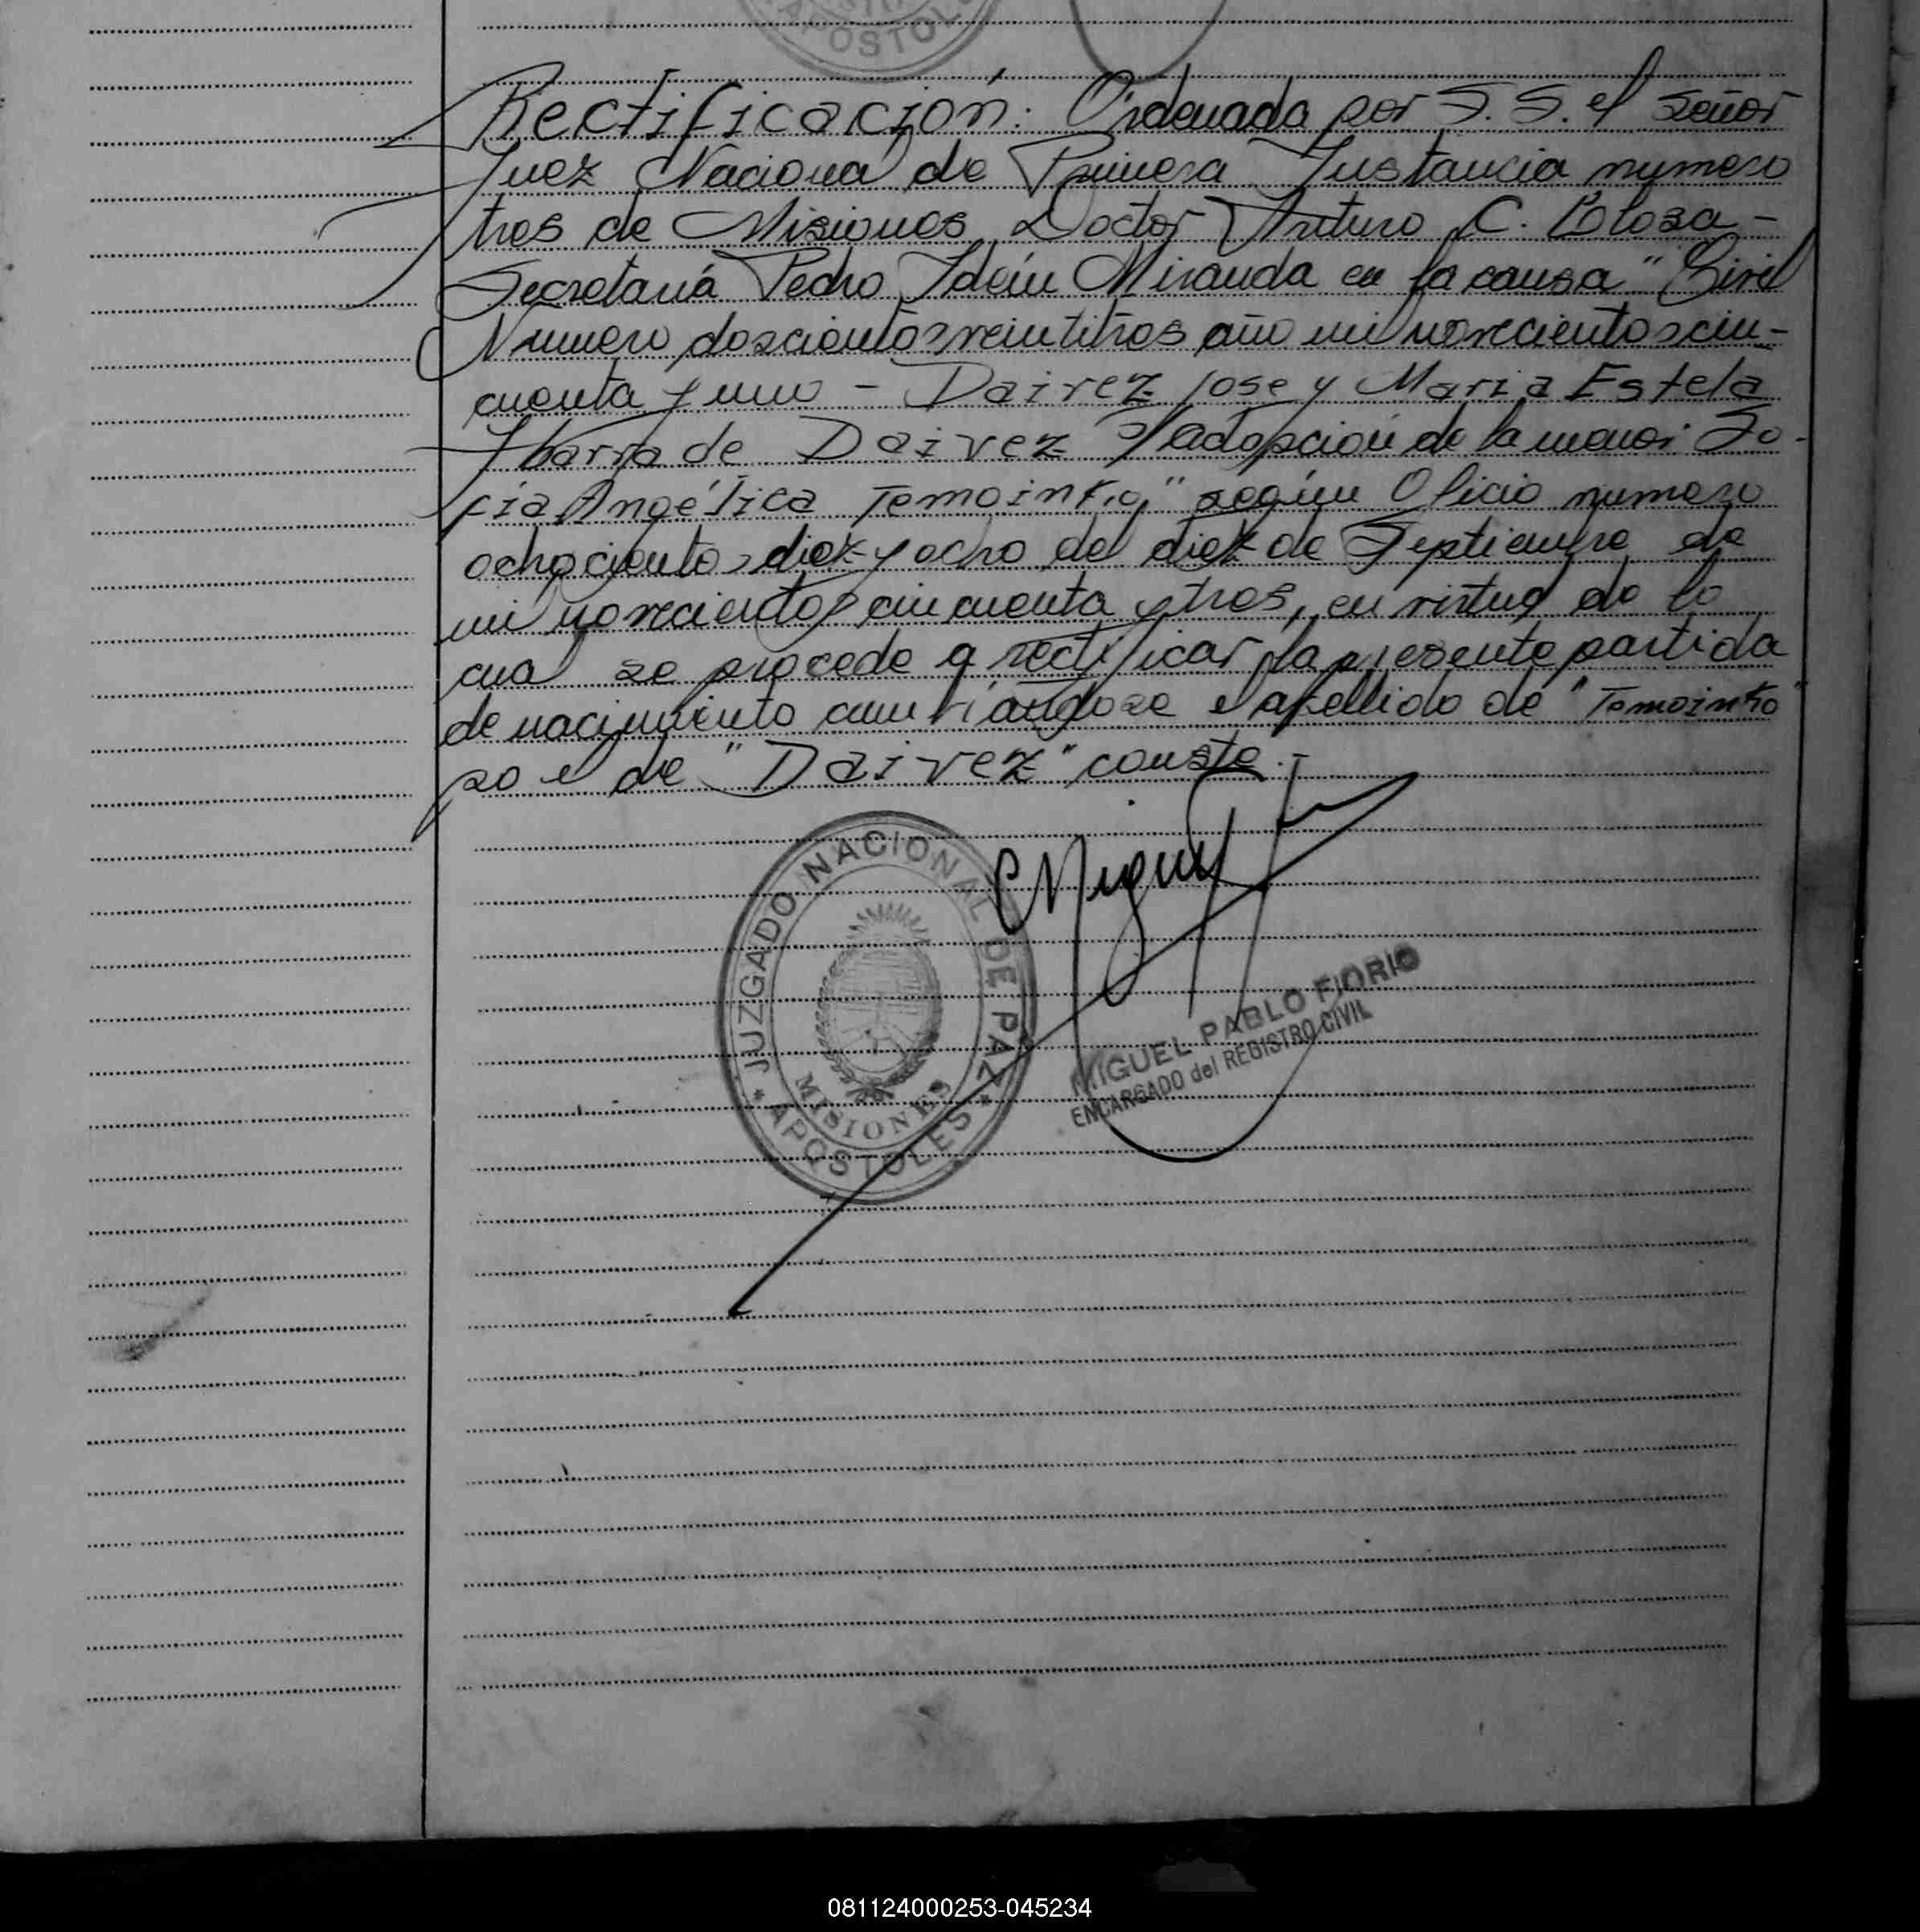 APOSTOL
Rectificación: Ordenada por S. S. el Señor
Juez Nacional de Primera Instancia numero
tres de Misiones, Doctor Arturo C.
Secretaria Pedro Miranda en la causa "Civil
Numero doscientos veintitres año mil novecientos cin-
cuenta y uno - Dairez Jose y Maria Estela
Ybarra de Daivez s/adopción de la menor So-
fía Angélica Temoinko," según Oficio numero
ochocientos diez y ocho del diez de Septiembre de
mil novecientos cincuenta y tres, en virtud de lo
cual se procede a rectificar la presente partida
de nacimiento cambiándose el apellido de "Temoinko"
po el de "Daivez" conste.-
JUZGADO NACIONAL DE PAZ
MISIONES
* APOSTOLES *
MIGUEL PABLO FIORIO
ENCARGADO del REGISTRO CIVIL
081124000253-045234